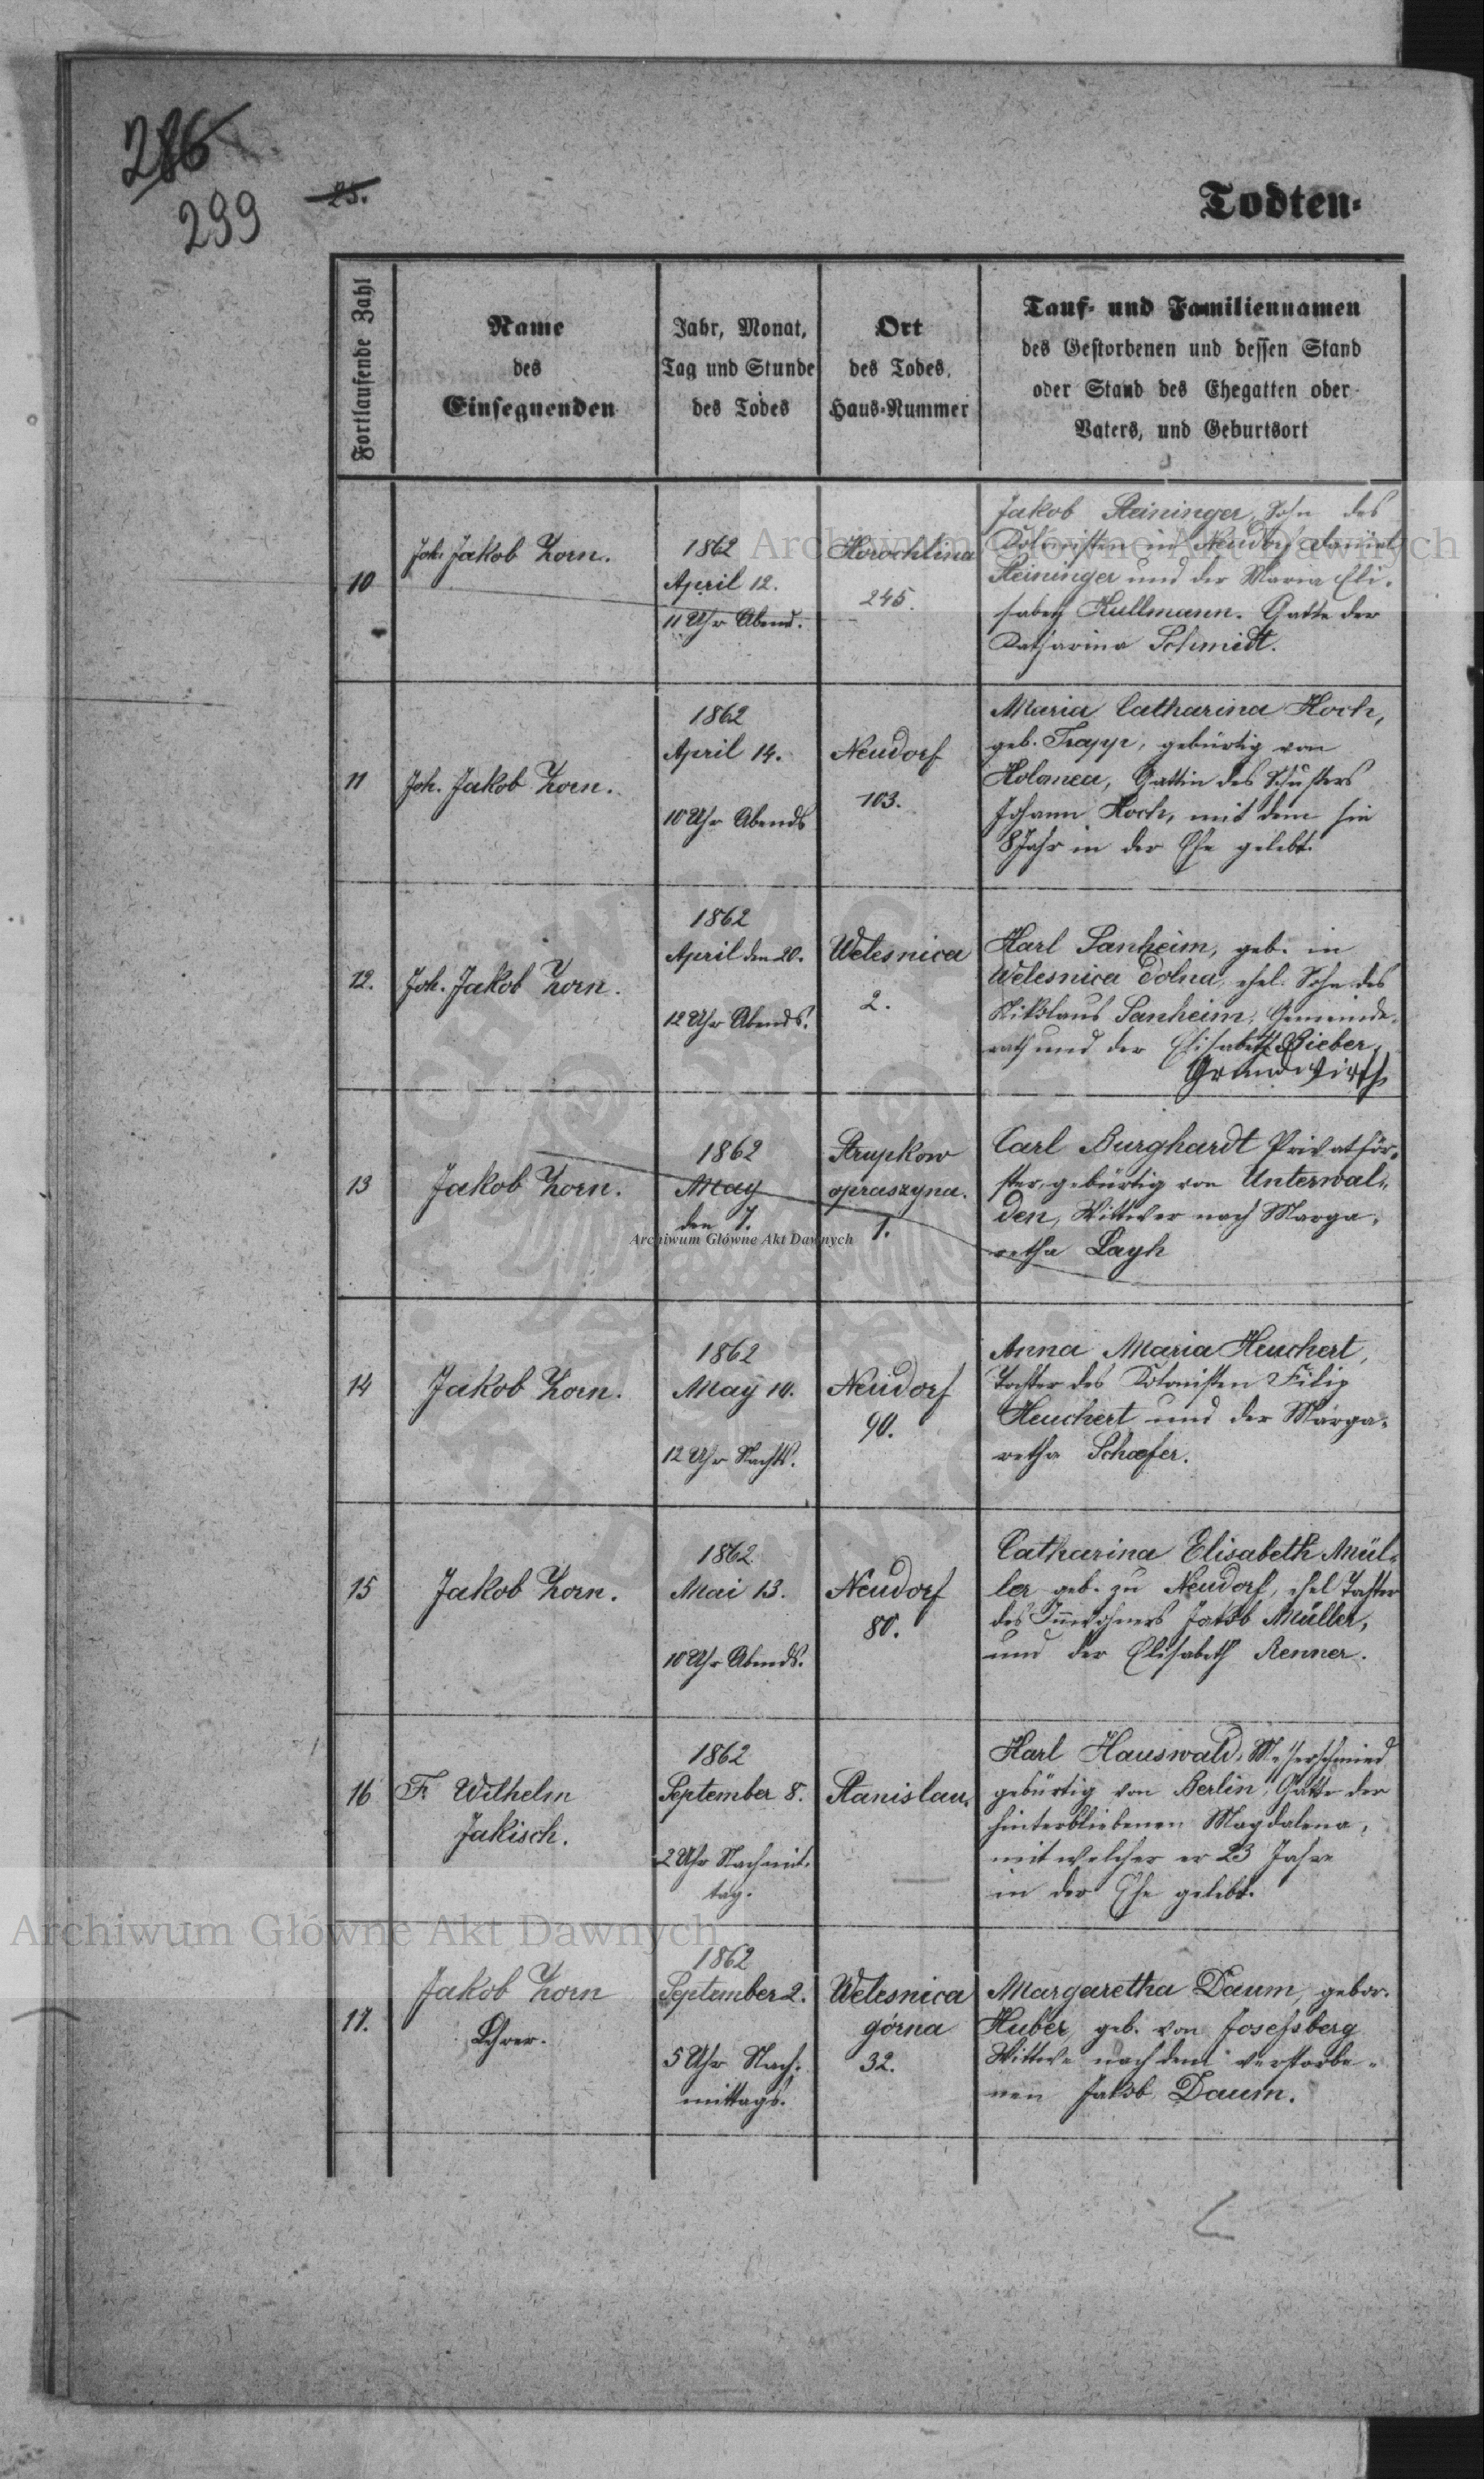 286
299
25.
Todten-
Fortlaufende Zahl
Name
des
Einsegnenden
Jahr, Monat,
Tag und Stunde
des Todes
Ort
des Todes,
Haus-Nummer
Tauf- und Familiennamen
des Gestorbenen und dessen Stand
oder Stand des Ehegatten oder
Vaters, und Geburtsort
10
Joh. Jakob Zorn.
1862
April 12.
11 Uhr Abend.
Horochlina
245.
Jakob Steininger, Sohn des
Kolonisten in Neudorf Daniel
Steininger und der Maria Eli-
sabeth Kullmann. Gatte der
Katharina Schmidt.
11
Joh. Jakob Zorn.
1862
April 14.
10 Uhr Abends
Neudorf
103.
Maria Catharina Koch,
geb. Trapp, gebürtig von
Kolomea, Gattin des Schusters
Johann Koch, mit dem sie
8 Jahr in der Ehe gelebt.
12.
Joh. Jakob Zorn.
1862
April den 20.
12 Uhr Abends.
Welesnica
2.
Karl Sanheim, geb. in
Welesnica dolna, ehel. Sohn des
Nikolaus Sanheim, Gemeinde-
rath und der Elisabeth Bieber,
Grundwirth
13
Jakob Zorn.
1862
May
den 7.
Strupkow
opraszyna.
1.
Carl Burghardt Privatför-
ster, gebürtig von Unterwal-
den, Wittwer nach Marga-
retha Layh
14
Jakob Zorn.
1862
May 10.
12 Uhr Nachts.
Neudorf
90.
Anna Maria Heuchert,
Tochter des Kolonisten Filip
Heuchert und der Marga-
retha Schæfer.
15
Jakob Zorn.
1862
Mai 13.
10 Uhr Abends.
Neudorf
80.
Catharina Elisabeth Mül-
ler geb. zu Neudorf, ehel Tochter
des Innwohners Jakob Müller,
und der Elisabeth Renner.
16
F. Wilhelm
Jakisch.
1862
September 8.
2 Uhr Nachmit-
tag.
Stanislau.
Karl Hauswald, Messerschmied
gebürtig von Berlin, Gatte der
hinterbliebenen Magdalena,
mit welcher er 23 Jahre
in der Ehe gelebt.
17.
Jakob Zorn
Lehrer.
1862
September 2.
5 Uhr Nach-
mittags.
Welesnica
górna
32.
Margaretha Daum, gebor.
Huber, geb. von Josefsberg
Wittwe nach dem verstorbe-
nen Jakob Daum.
Archiwum Główne Akt Dawnych
Archiwum Główne Akt Dawnych
Archiwum Główne Akt Dawnych